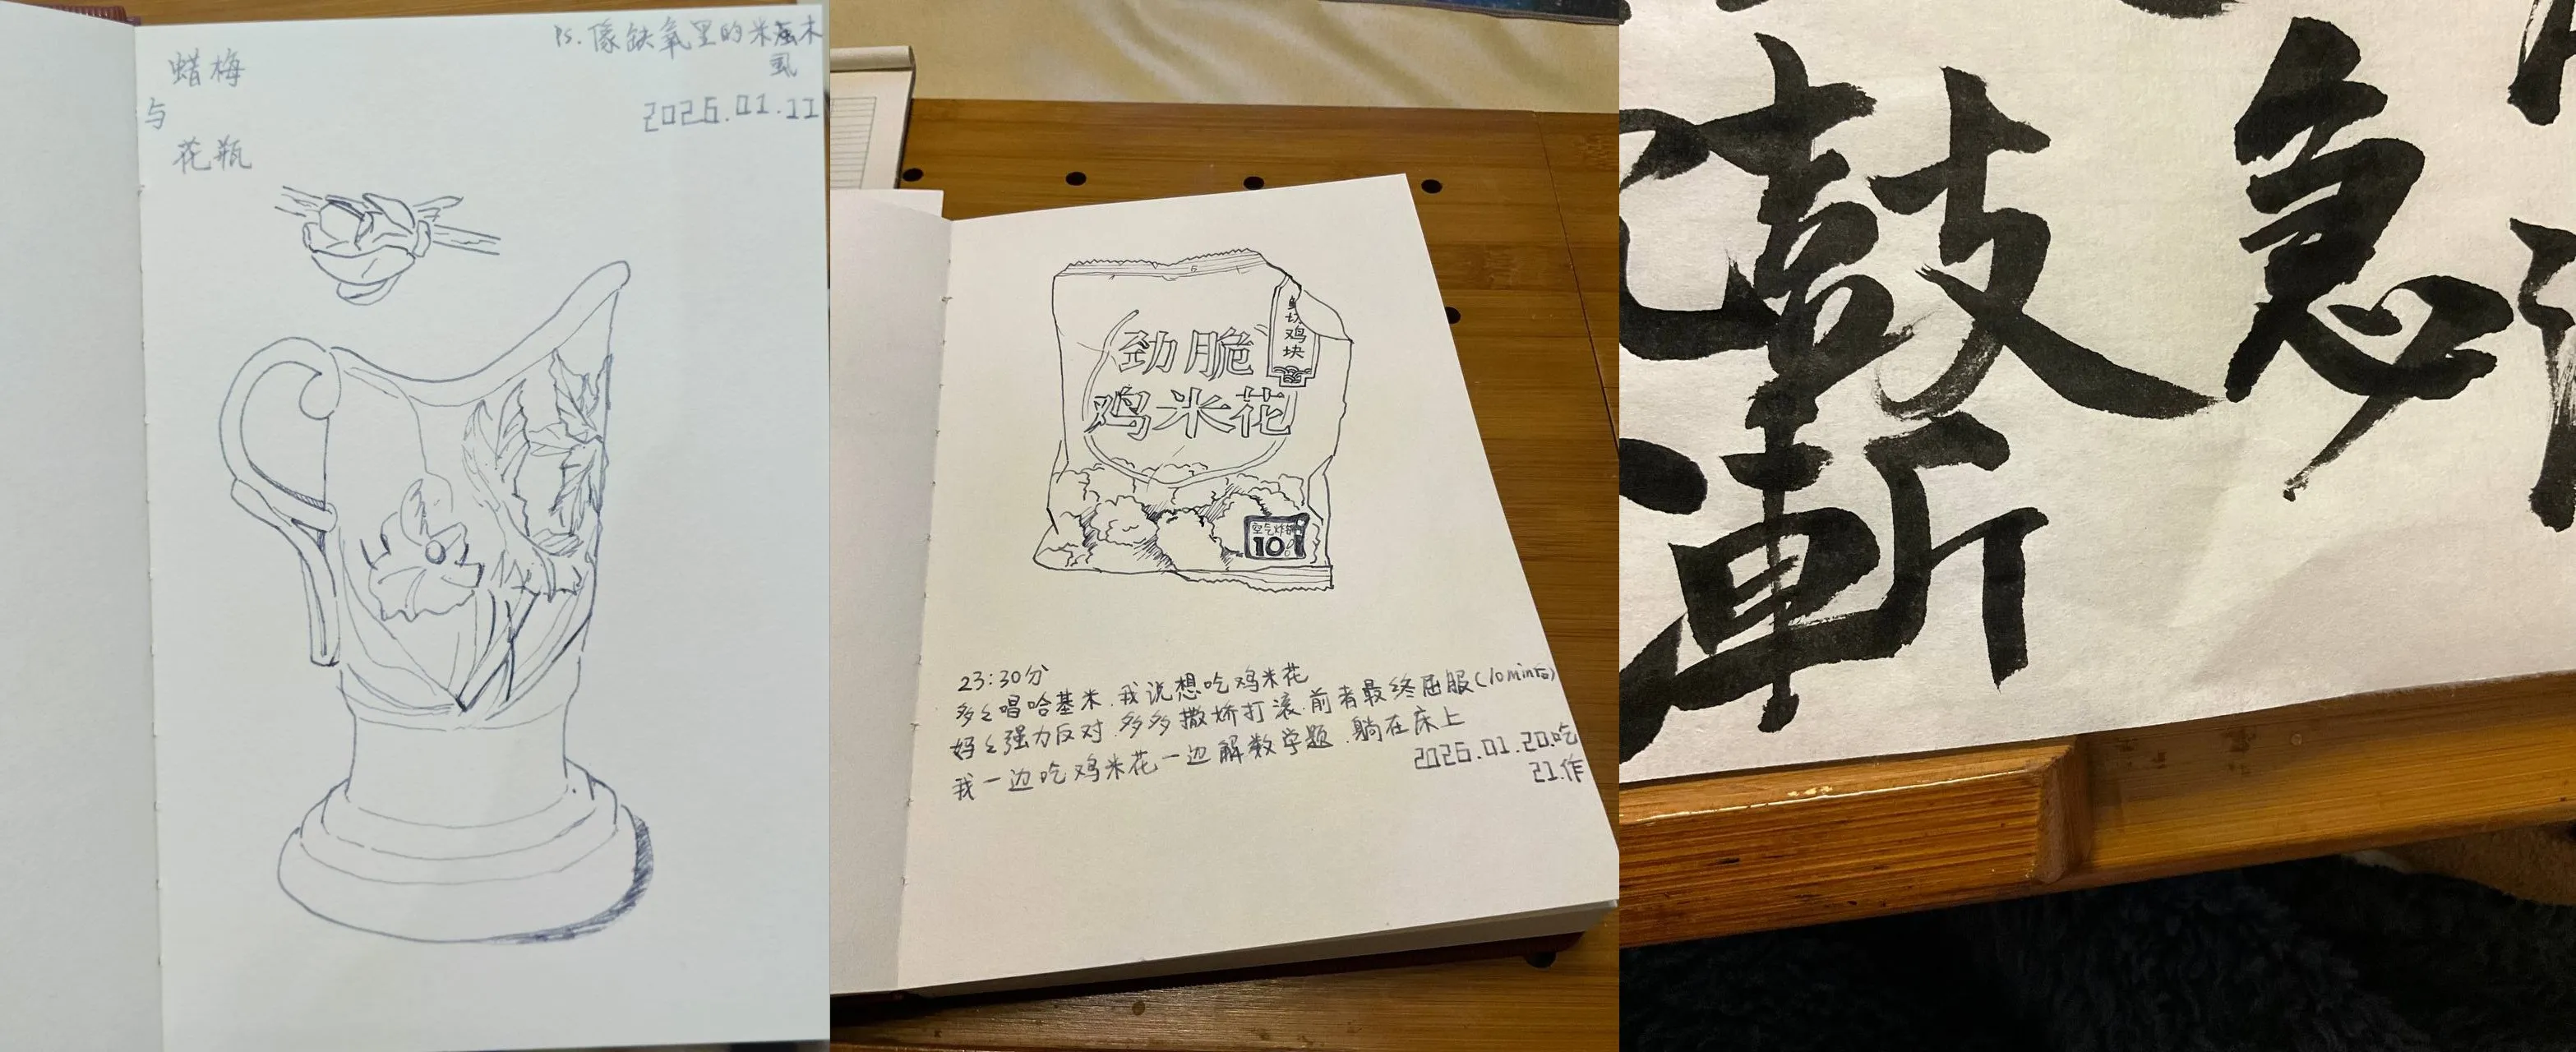 蜡梅
与
花瓶
PS.像缺氧里的米
虱
2026.01.11
鸡块
劲脆
鸡米花
空气炸
10
23:30分
多々唱哈基米.我说想吃鸡米花
妈々强力反对.多多撒娇打滚.前者最终屈服(10min后)
我一边吃鸡米花一边解数学题.躺在床上
2026.01.20.吃
21.作
鼓 急
漸